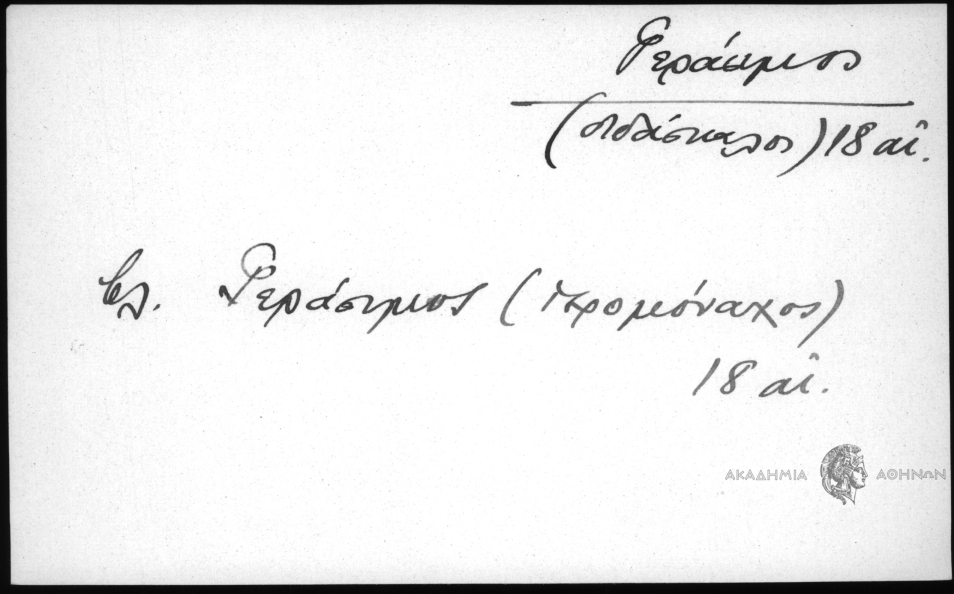 Γεράσιμος
(διδάσκαλος) 18 αἰ.
βλ. Γεράσιμος (ἱερομόναχος)
18 αἰ.
ΑΚΑΔΗΜΙΑ ΑΘΗΝΩΝ